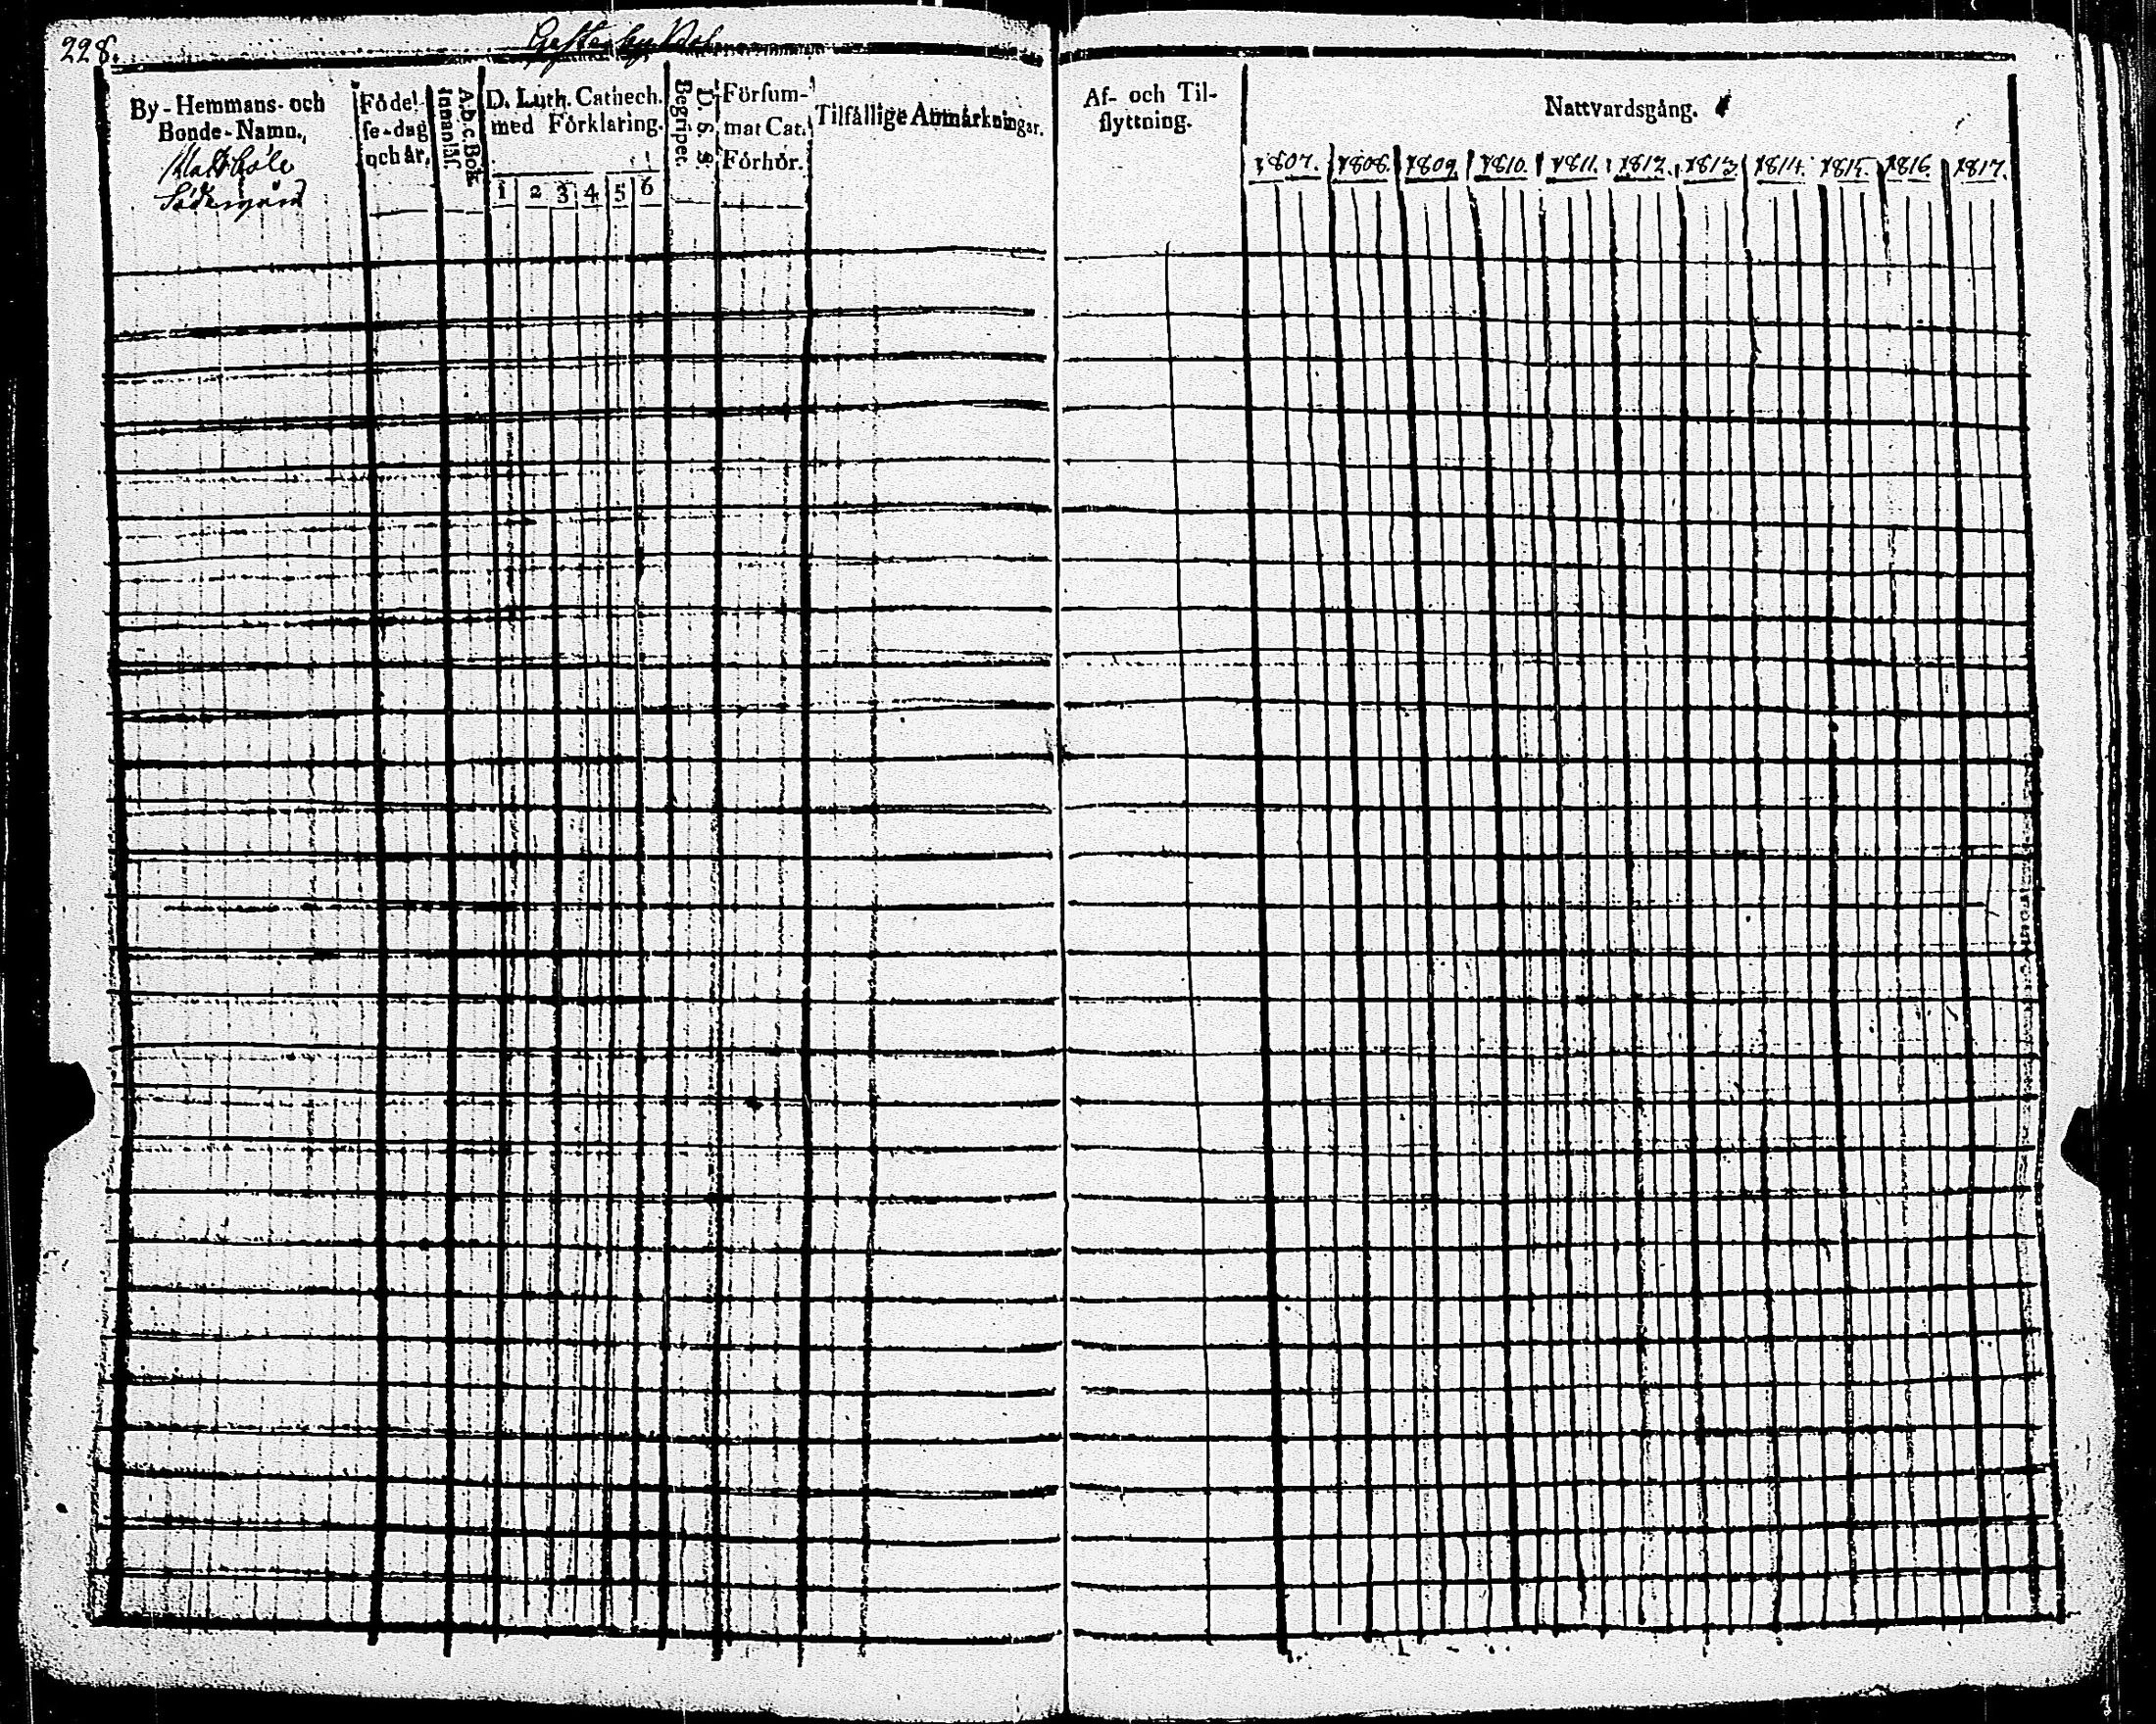 228.
Gesterby Rote
By-Hemmans- och
Bonde-Namn.
Mattböle
Södergård
Födel-
se-dag
och år.
A.b.c.Bok
Innanläs
D. Luth. Cathech.
med Förklaring.
1 2 3 4 5 6
D. 6. S.
Begriper.
Försum-
mat Cat.
Förhör.
Tilfällige Anmärkningar.
Af- och Til-
flyttning.
Nattvardsgång.
1807. 1808. 1809. 1810. 1811. 1812. 1813. 1814. 1815. 1816. 1817.